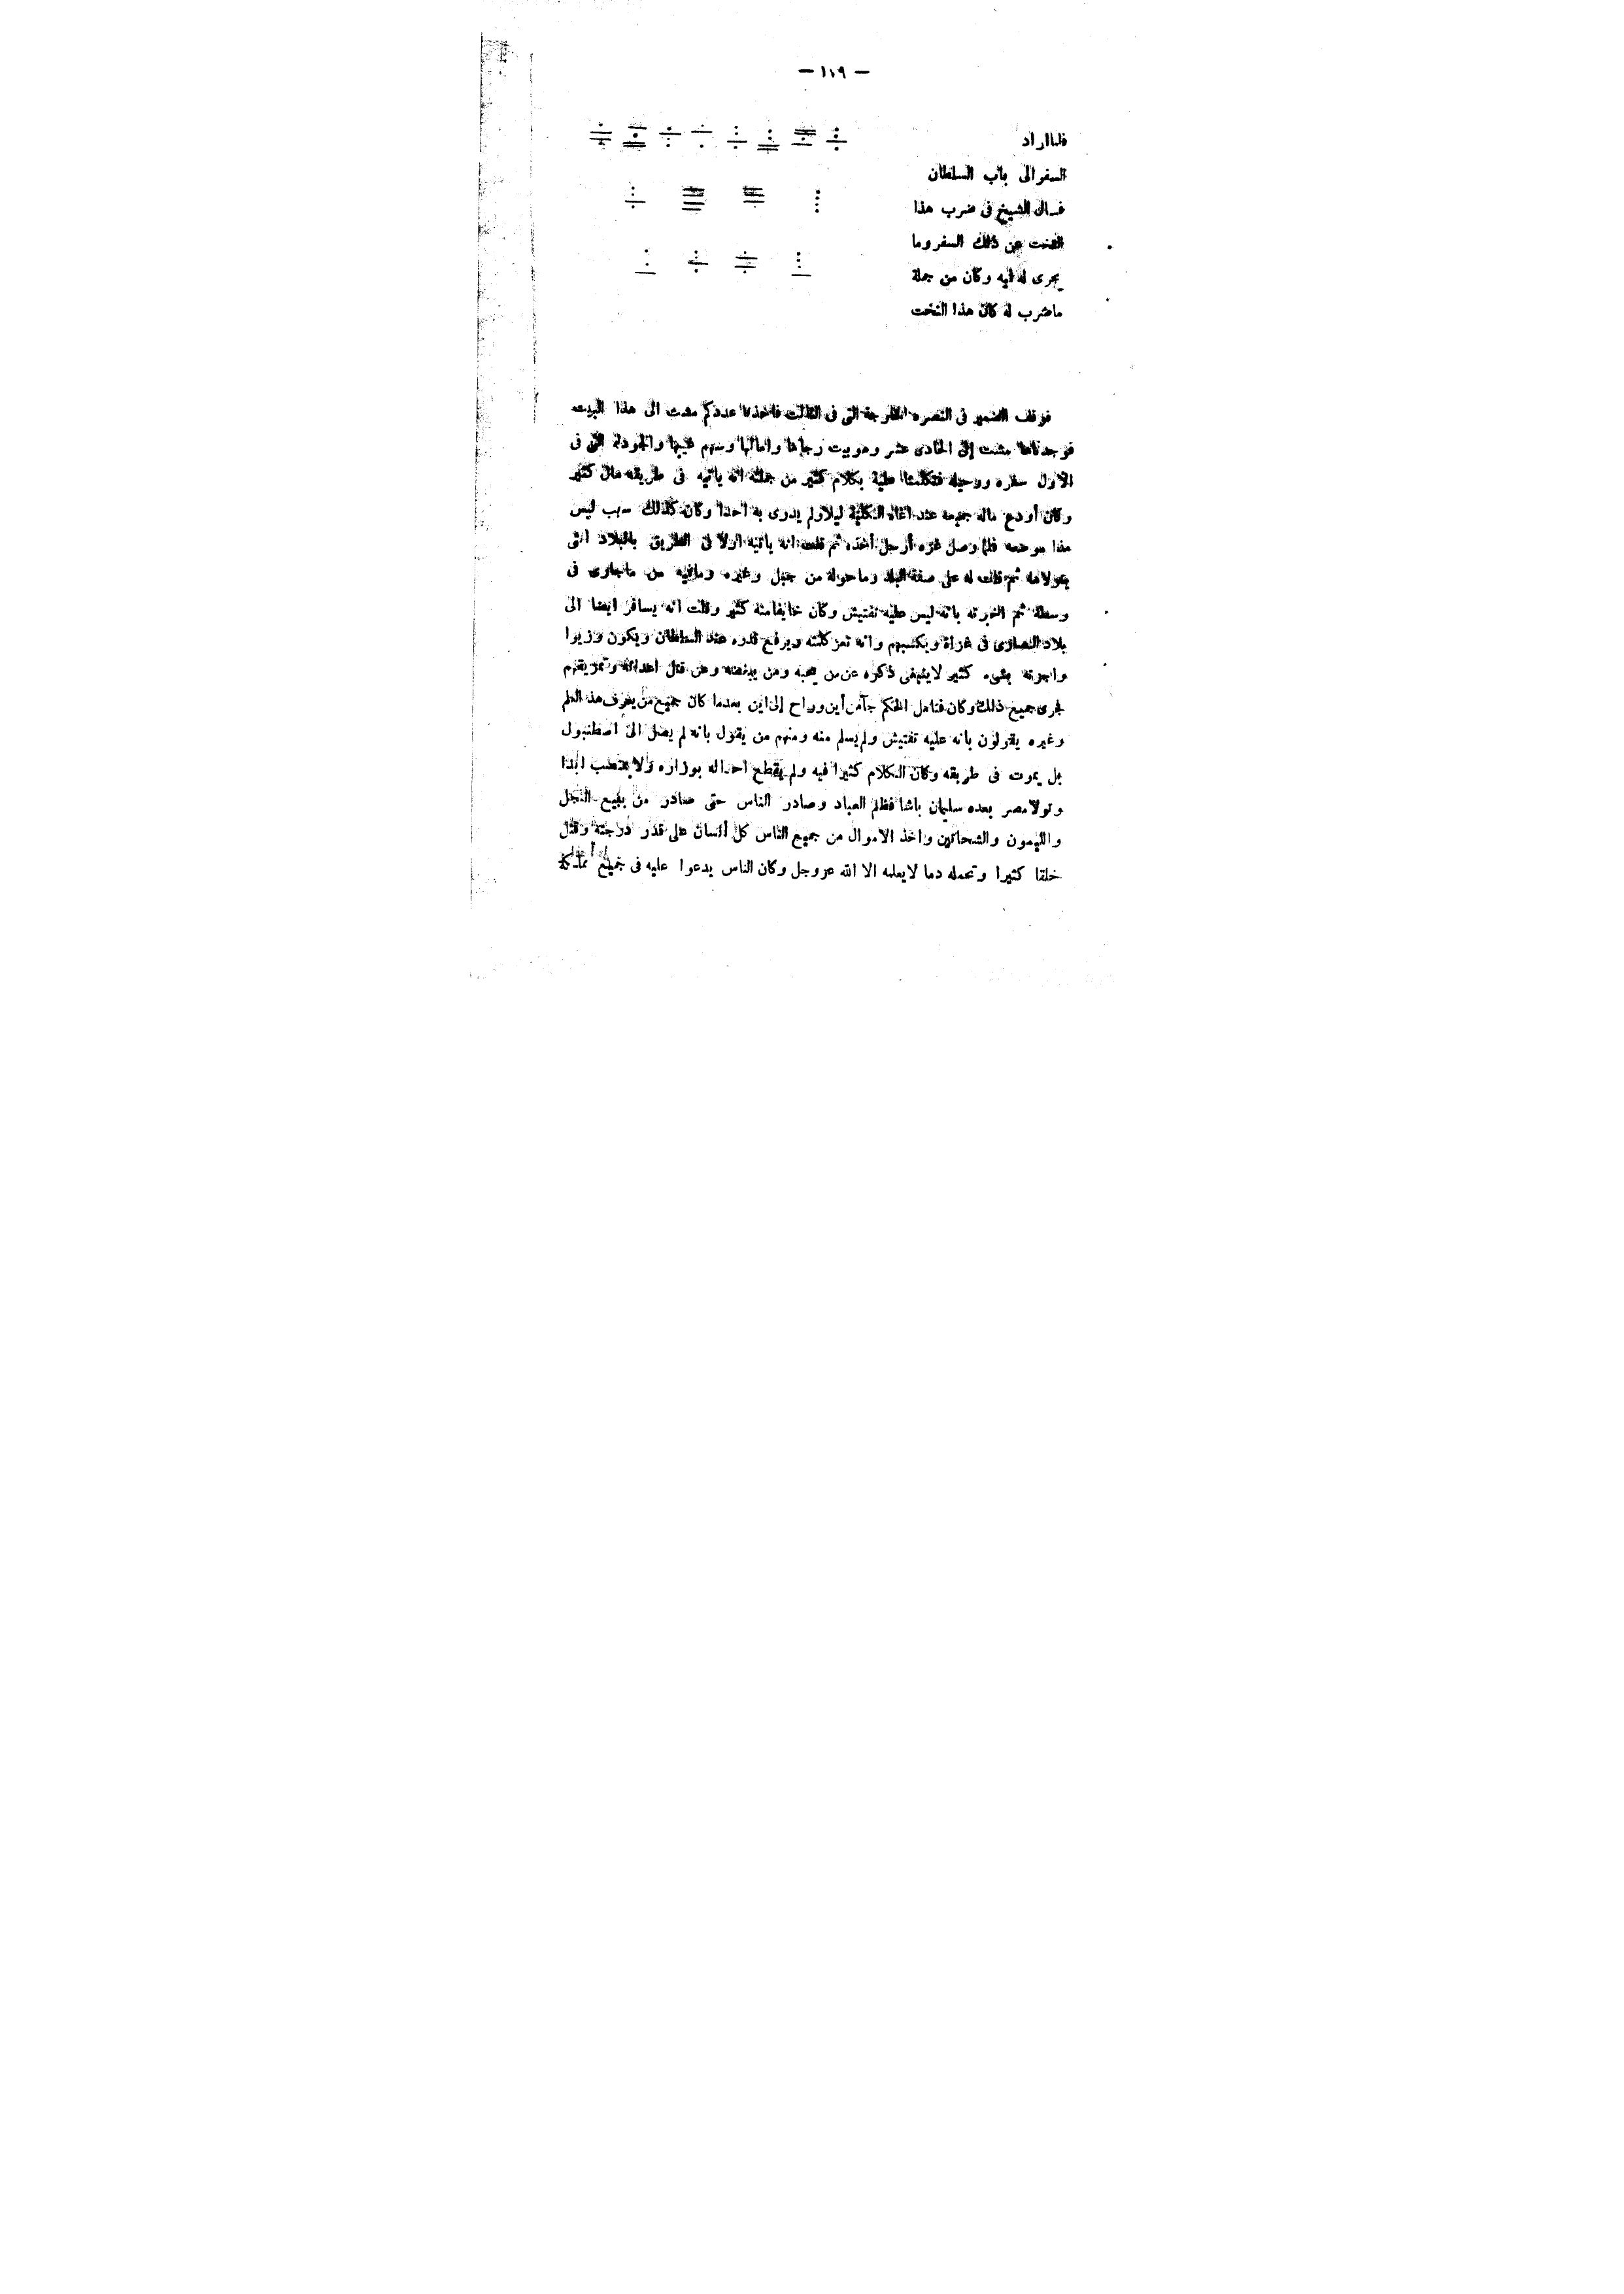 — ١١٩ —
فلما اراد
السفر الى باب السلطان
فسال الشيخ فى ضرب هذا
التخت عن ذلك السفر وما
يجرى له فيه وكان من جملة
ماضرب له كان هذا التخت
فوقف الضمير فى النصره الخارجة التى فى الثالث فاخذنا عددكم مشت الى هذا البيت
فوجدناها مشت إلى الحادى عشر وهو بيت رجاها وامالها وسهم غيبها والجودلة التى فى
الاول سفره ورحيله فتكلمنا عليه بكلام كثير من جملته انه ياتيه فى طريقه مال كثير
وكان أودع ماله جميعه عند اغاه التكلية ليلا ولم يدرى به احدا وكان كذلك سبب ليس
هذا موضعه فلما وصل غزه أرسل أخذه ثم قلت انه ياتيه اولا فى الطريق بالبلاد التى
يتولاها ثم قلت له على صفة البلد وما حوله من جبل وغيره ومافيه من ماجارى فى
وسطه ثم اخبرته بانه ليس عليه تفتيش وكان خايفا منه كثير وقلت انه يسافر ايضا الى
بلاد النصارى فى غزاة ويكسبهم وانه تعز كلمته ويرفع قدره عند السلطان ويكون وزيرا
واجرته بشىء كثير لاينبغى ذكره عن من يحبه ومن يبغضه وعن قتل اعدائه وتمزيقهم
فجرى جميع ذلك وكان فتامل الحكم جآ من أين وراح إلى اين بعدما كان جميع من يعرف هذ العلم
وغيره يقولون بانه عليه تفتيش ولم يسلم منه ومنهم من يقول بانه لم يصل الى اصطنبول
بل يموت فى طريقه وكان الكلام كثيرا فيه ولم يقطع احد اله بوزاره ولا بمنصب ابدا
وتولا مصر بعده سليمان باشا فظلم العباد وصادر الناس حتى صادر من يبيع الفجل
والليمون والشحاتين واخذ الاموال من جميع الناس كل أنسان على قدر درجته وقتل
خلقا كثيرا وتحمله دما لايعلمه الا الله عز وجل وكان الناس يدعوا عليه فى جميع